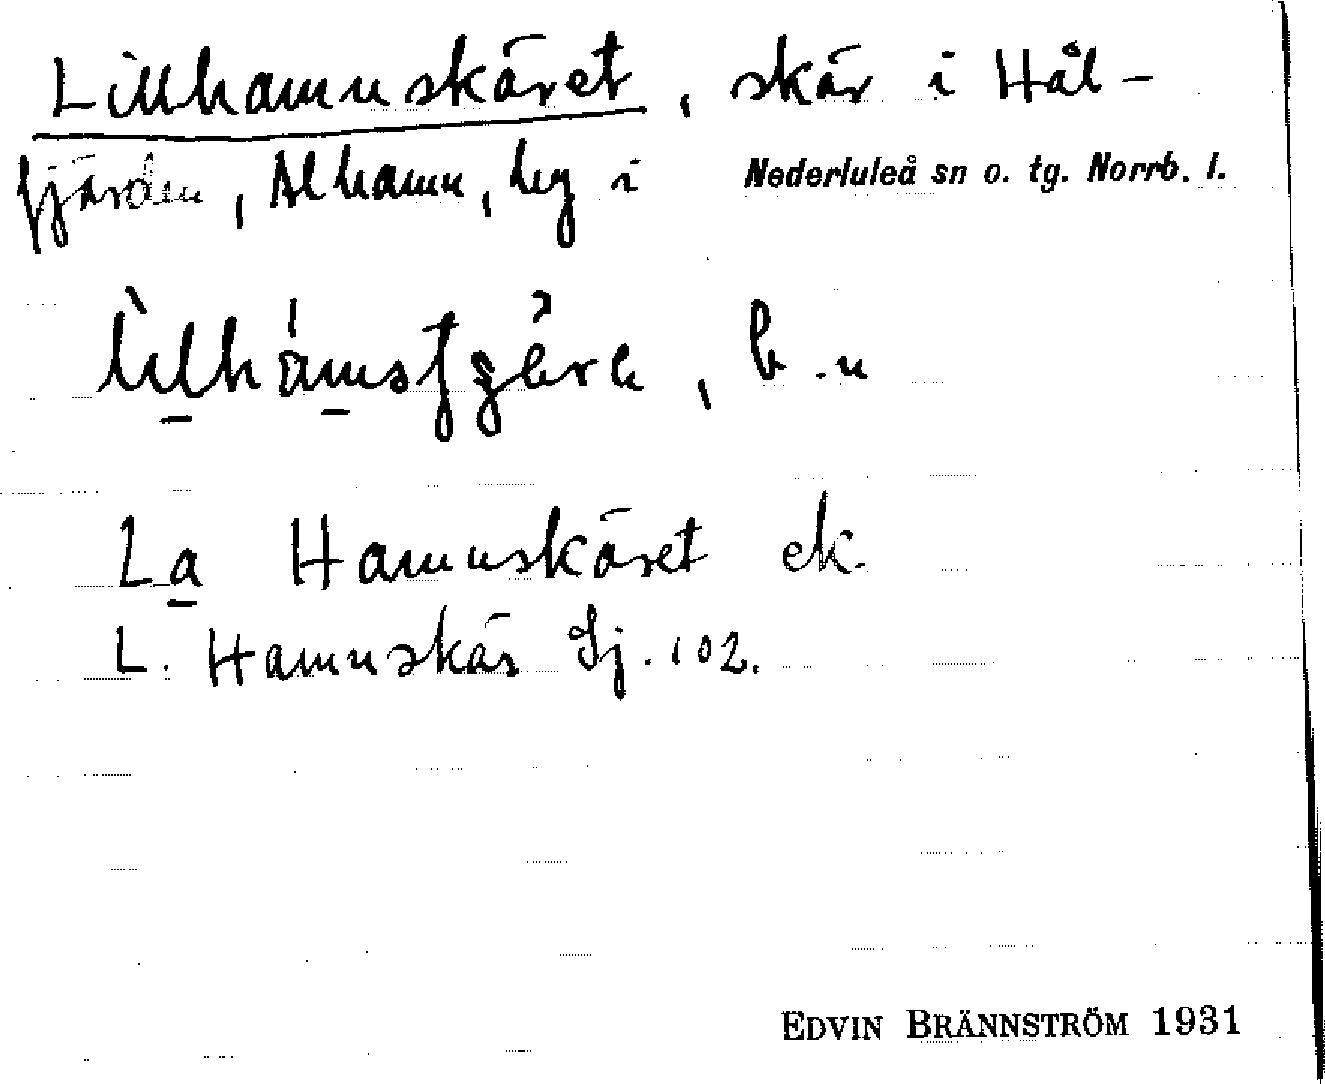 Lillhamnskäret, skär i Hål-
fjärden, Alhamn, by i Nederluleå sn o. tg. Norrb. l.
b.n
La Hamnskäret ek.
L. Hamnskär Sj. 102.
EDVIN BRÄNNSTRÖM 1931